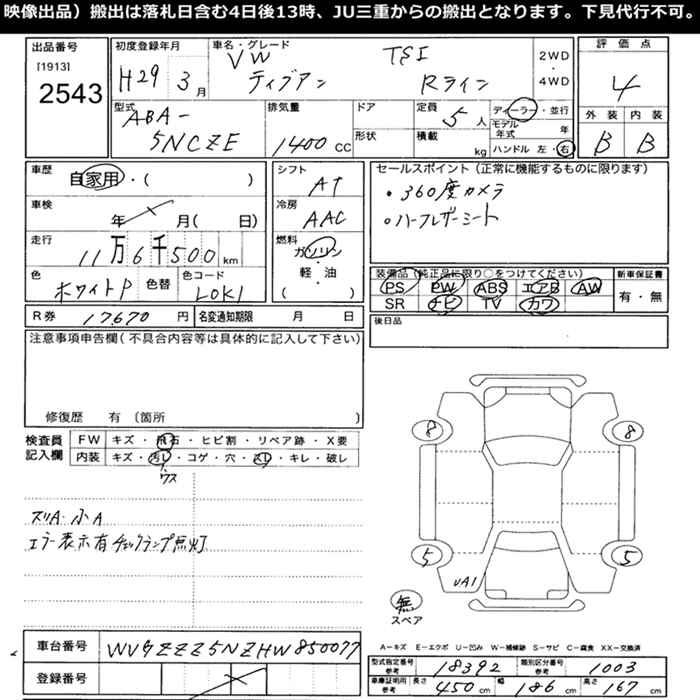 映像出品）搬出は落札日含む4日後13時、JU三重からの搬出となります。下見代行不可。
出品番号
[1913]
2543
初度登録年月
H29 3月
車名・グレード
VW TSI
ティグアン Rライン
2WD
・
4WD
評価点
4
外装 内装
B B
型式
ABA-
5NCZE
排気量
1400 CC
ドア
形状
定員 5人
積載 kg
ディーラー・並行
モデル年式 年
ハンドル 左・右
車歴
自家用・( )
車検
年 月( 日)
走行
11万6千500km
色
ホワイトP
色替
色コード
LOK1
シフト
AT
冷房
AAC
燃料
ガソリン
・
軽・油
( )
セールスポイント（正常に機能するものに限ります）
・360度カメラ
・ハーフレザーシート
装備品（純正品に限り○をつけてください）
PS PW ABS エアB AW
SR ナビ TV カワ
新車保証書
有・無
R券 17,670 円
名変通知期限 月 日
後日品
注意事項申告欄（不具合内容等は具体的に記入して下さい）
修復歴 有（箇所 ）
検査員
記入欄
FW キズ・飛石・ヒビ割・リペア跡・X要
内装 キズ・汚レ・コゲ・穴・スレ・キレ・破レ
スリA 小A
エラー表示有 チェックランプ点灯
8 8
5 5
UA1
無
スペア
A－キズ E－エクボ U－凹み W－補修跡 S－サビ C－腐食 XX－交換済
車台番号 WVGZZZ5NZHW850077
登録番号
型式指定番号 参考 18392
類別区分番号 参考 1003
車庫証明用 参考 長さ 450cm 幅 186cm 高さ 167cm